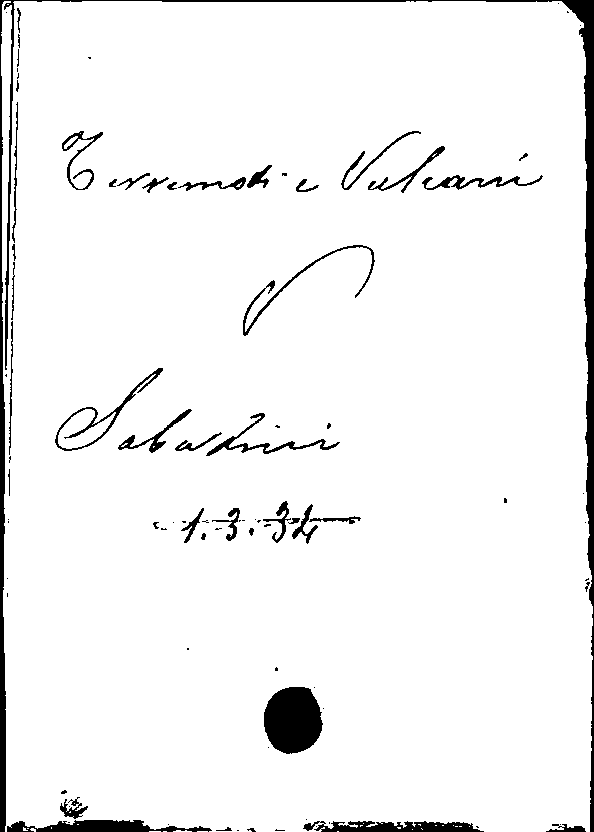 Terremoti e Vulcani
V
Sabatini
1.3.34